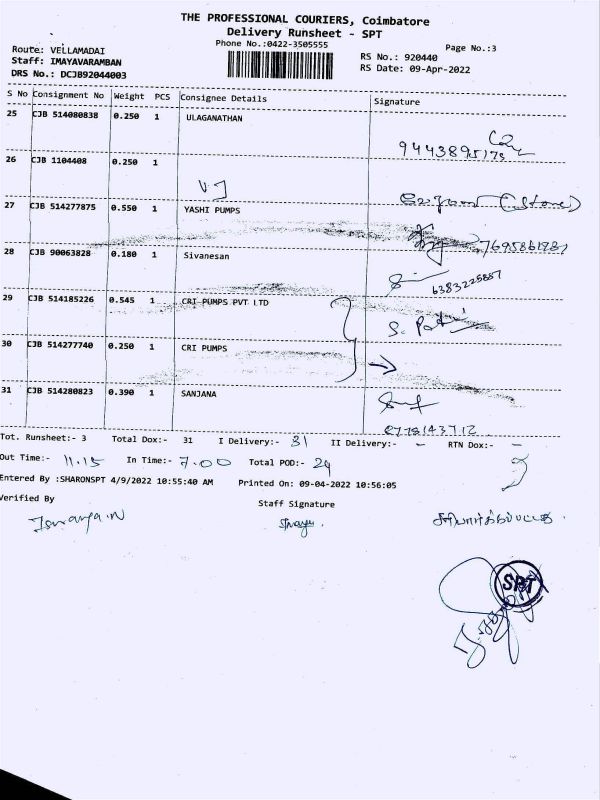 THE PROFESSIONAL COURIERS, Coimbatore
Delivery Runsheet - SPT
Phone No.:0422-3505555
Page No.:3
Route: VELLAMADAI
RS No.: 920440
Staff: IMAYAVARAMBAN
RS Date: 09-Apr-2022
DRS No.: DCJB92044003
S No Consignment No Weight PCS Consignee Details Signature
25 CJB 514080838 0.250 1 ULAGANATHAN
9443895173
26 CJB 1104408 0.250 1
VJ
27 CJB 514277875 0.550 1 YASHI PUMPS
28 CJB 90063828 0.180 1 Sivanesan
6383225887
29 CJB 514185226 0.545 1 CRI PUMPS PVT LTD
30 CJB 514277740 0.250 1 CRI PUMPS
31 CJB 514280823 0.390 1 SANJANA
Tot. Runsheet:- 3 Total Dox:- 31 I Delivery:- 31 II Delivery:- - RTN Dox:- -
Out Time:- 11.15 In Time:- 7.00 Total POD:- 29
Entered By :SHARONSPT 4/9/2022 10:55:40 AM Printed On: 09-04-2022 10:56:05
Verified By
Staff Signature
சரிபார்க்கப்பட்டது.
SPT